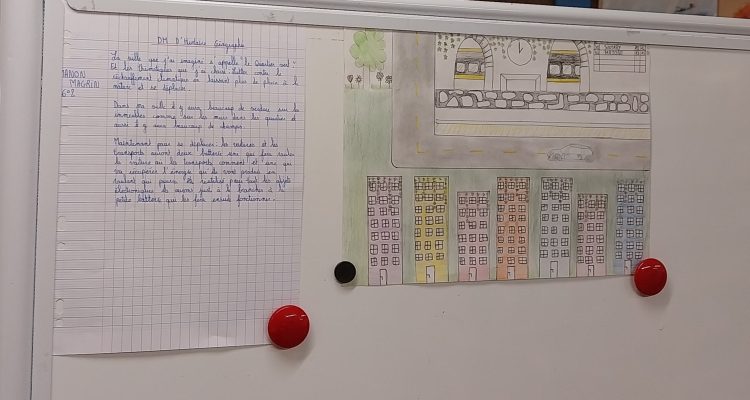 DM D'Histoire Géographie
MANON
MAGRIN
6°2
La ville que j'ai imaginé s'appelle "le Quartier vert".
Et les thématiques que j'ai choisi : lutter contre le
réchauffement climatique en laissant plus de place à la
nature et se déplacer.
Dans ma ville il y aura beaucoup de verdure sur les
immeubles comme sur les murs dans les quartiers et
aussi il y aura beaucoup de champs.
Maintenant pour se déplacer, les voitures et les
transports auront deux batteries une qui fera rouler
la voiture ou les transports comment et une qui
va récupérer l'énergie qu'ils vont produire en
roulant qui pourra les objets
électroniques ils auront juste à le brancher à la
petite batterie qui les fera ensuite fonctionner.